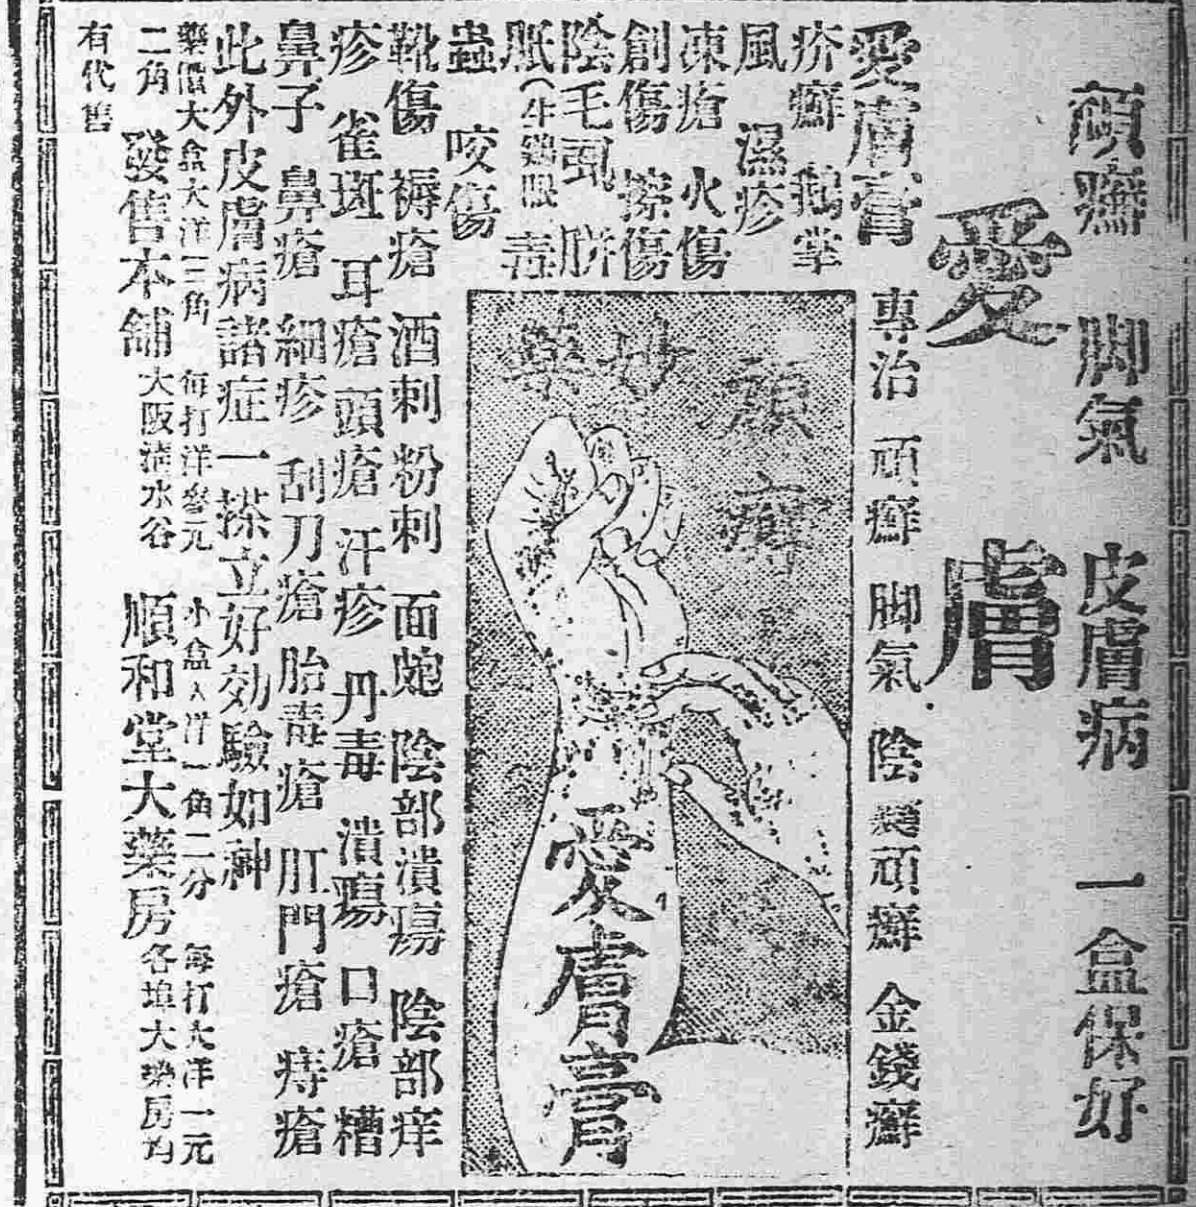 頑癬 脚氣 皮膚病 一盒保好
愛膚
愛膚膏 專治 頑癬 脚氣 陰囊頑癬 金錢癬
疥癬 鵝掌
風 濕疹
凍瘡 火傷
創傷 擦傷
陰毛虱 胼
胝(牛鷄眼 毒
蟲 咬傷
頑癬
妙藥
愛膚膏
靴傷 褥瘡 酒刺 粉刺 面皰 陰部潰瘍 陰部痒
疹 雀斑 耳瘡 頭瘡 汗疹 丹毒 潰瘍 口瘡 糟
鼻子 鼻瘡 細疹 刮刀瘡 胎毒瘡 肛門瘡 痔瘡
此外皮膚病諸症一搽立好効驗如神
藥價大盒大洋三角 每打洋叁元 小盒大洋一角二分 每打大洋一元
二角
發售本舖 大阪清水谷 順和堂大藥房 各埠大藥房均
有代售